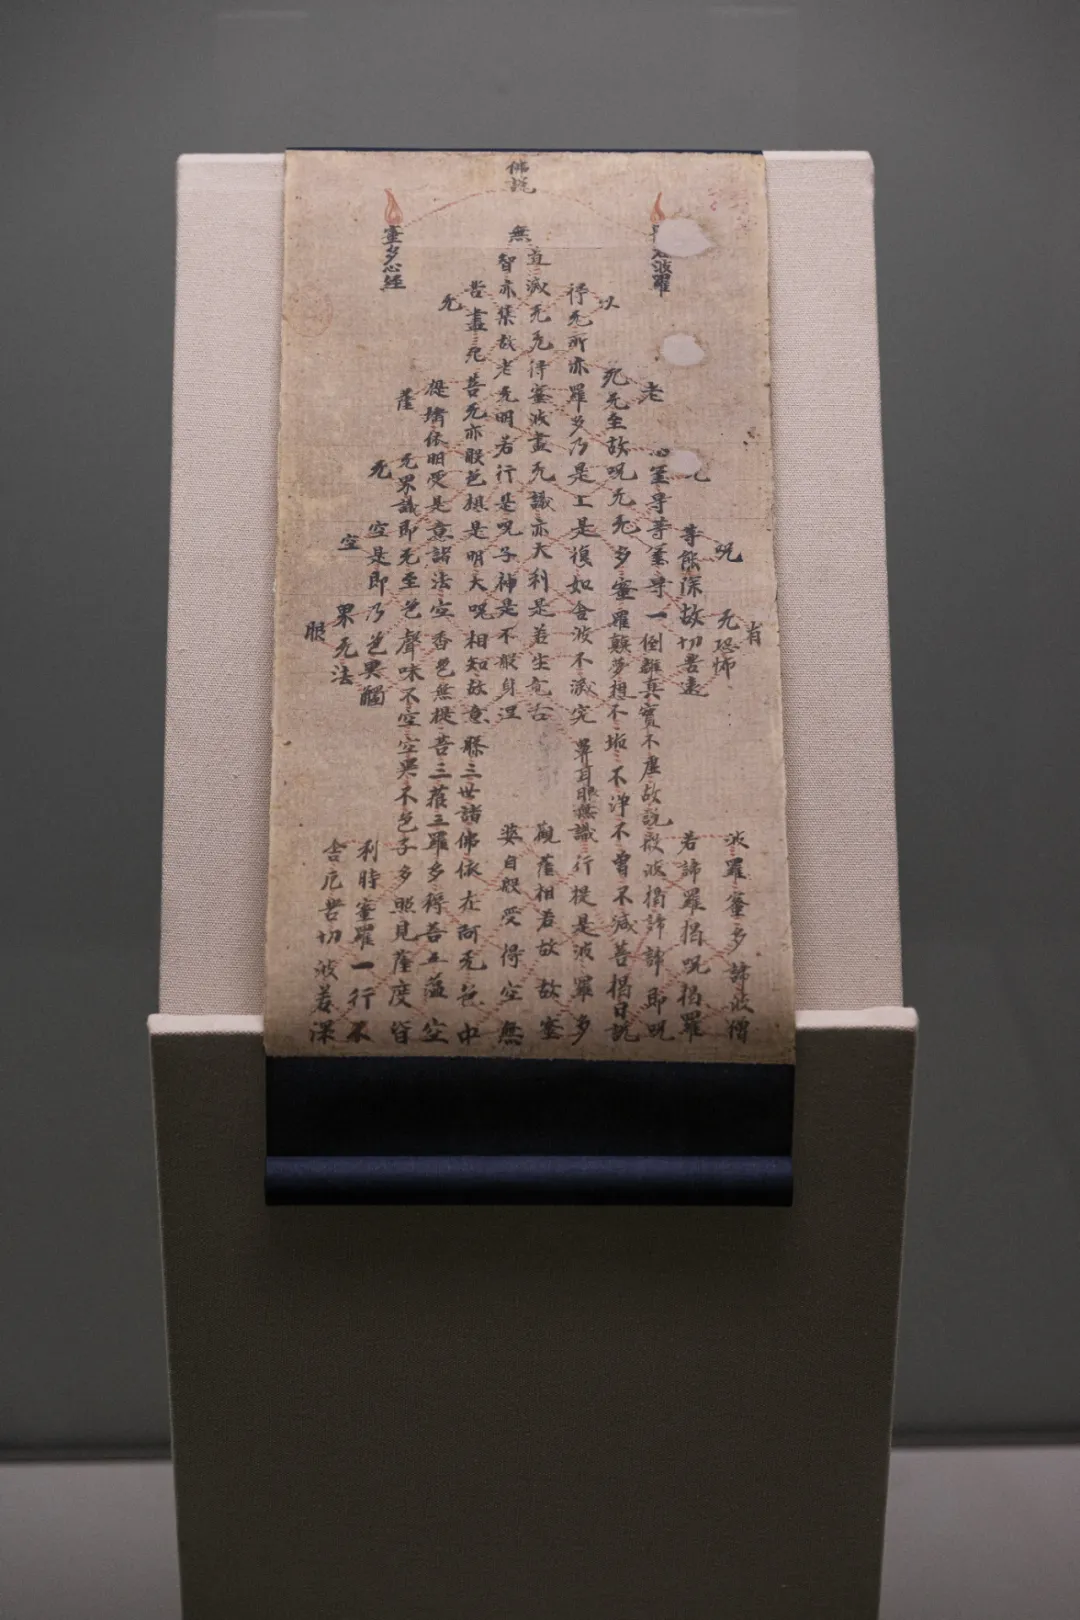 佛說
波羅
蜜多心經
有
呪
无恐怖
波羅蜜多諦波僧
等能深故切苦遠
若諦羅揭呪揭羅
老
一倒離真實不虛故說般波揭諦諦即呪
以
死无至故呪无无多蜜羅顛夢想不垢不淨不曾不減菩揭曰說
得无所亦羅多乃是上是復如舍波不滅究鼻耳眼無識行提是波羅多
道滅无无得蜜波盡无識亦大利是若生究舌
觀薩相若故故蜜
無智亦集故老无明若行是呪子神是不般身涅
婆自般受得空無
苦盡死菩无亦眼色想是明大呪相知故意
三世諸佛依在阿无色中
无
提埵依明受是意諸法空香色無提菩三藐三羅多得菩五蘊空
薩
无界識即无至色聲味不空空異不色子多照見薩度皆
无
空是即乃色異觸
利時蜜羅一行不
空
界无法
眼
舍厄苦切波若深